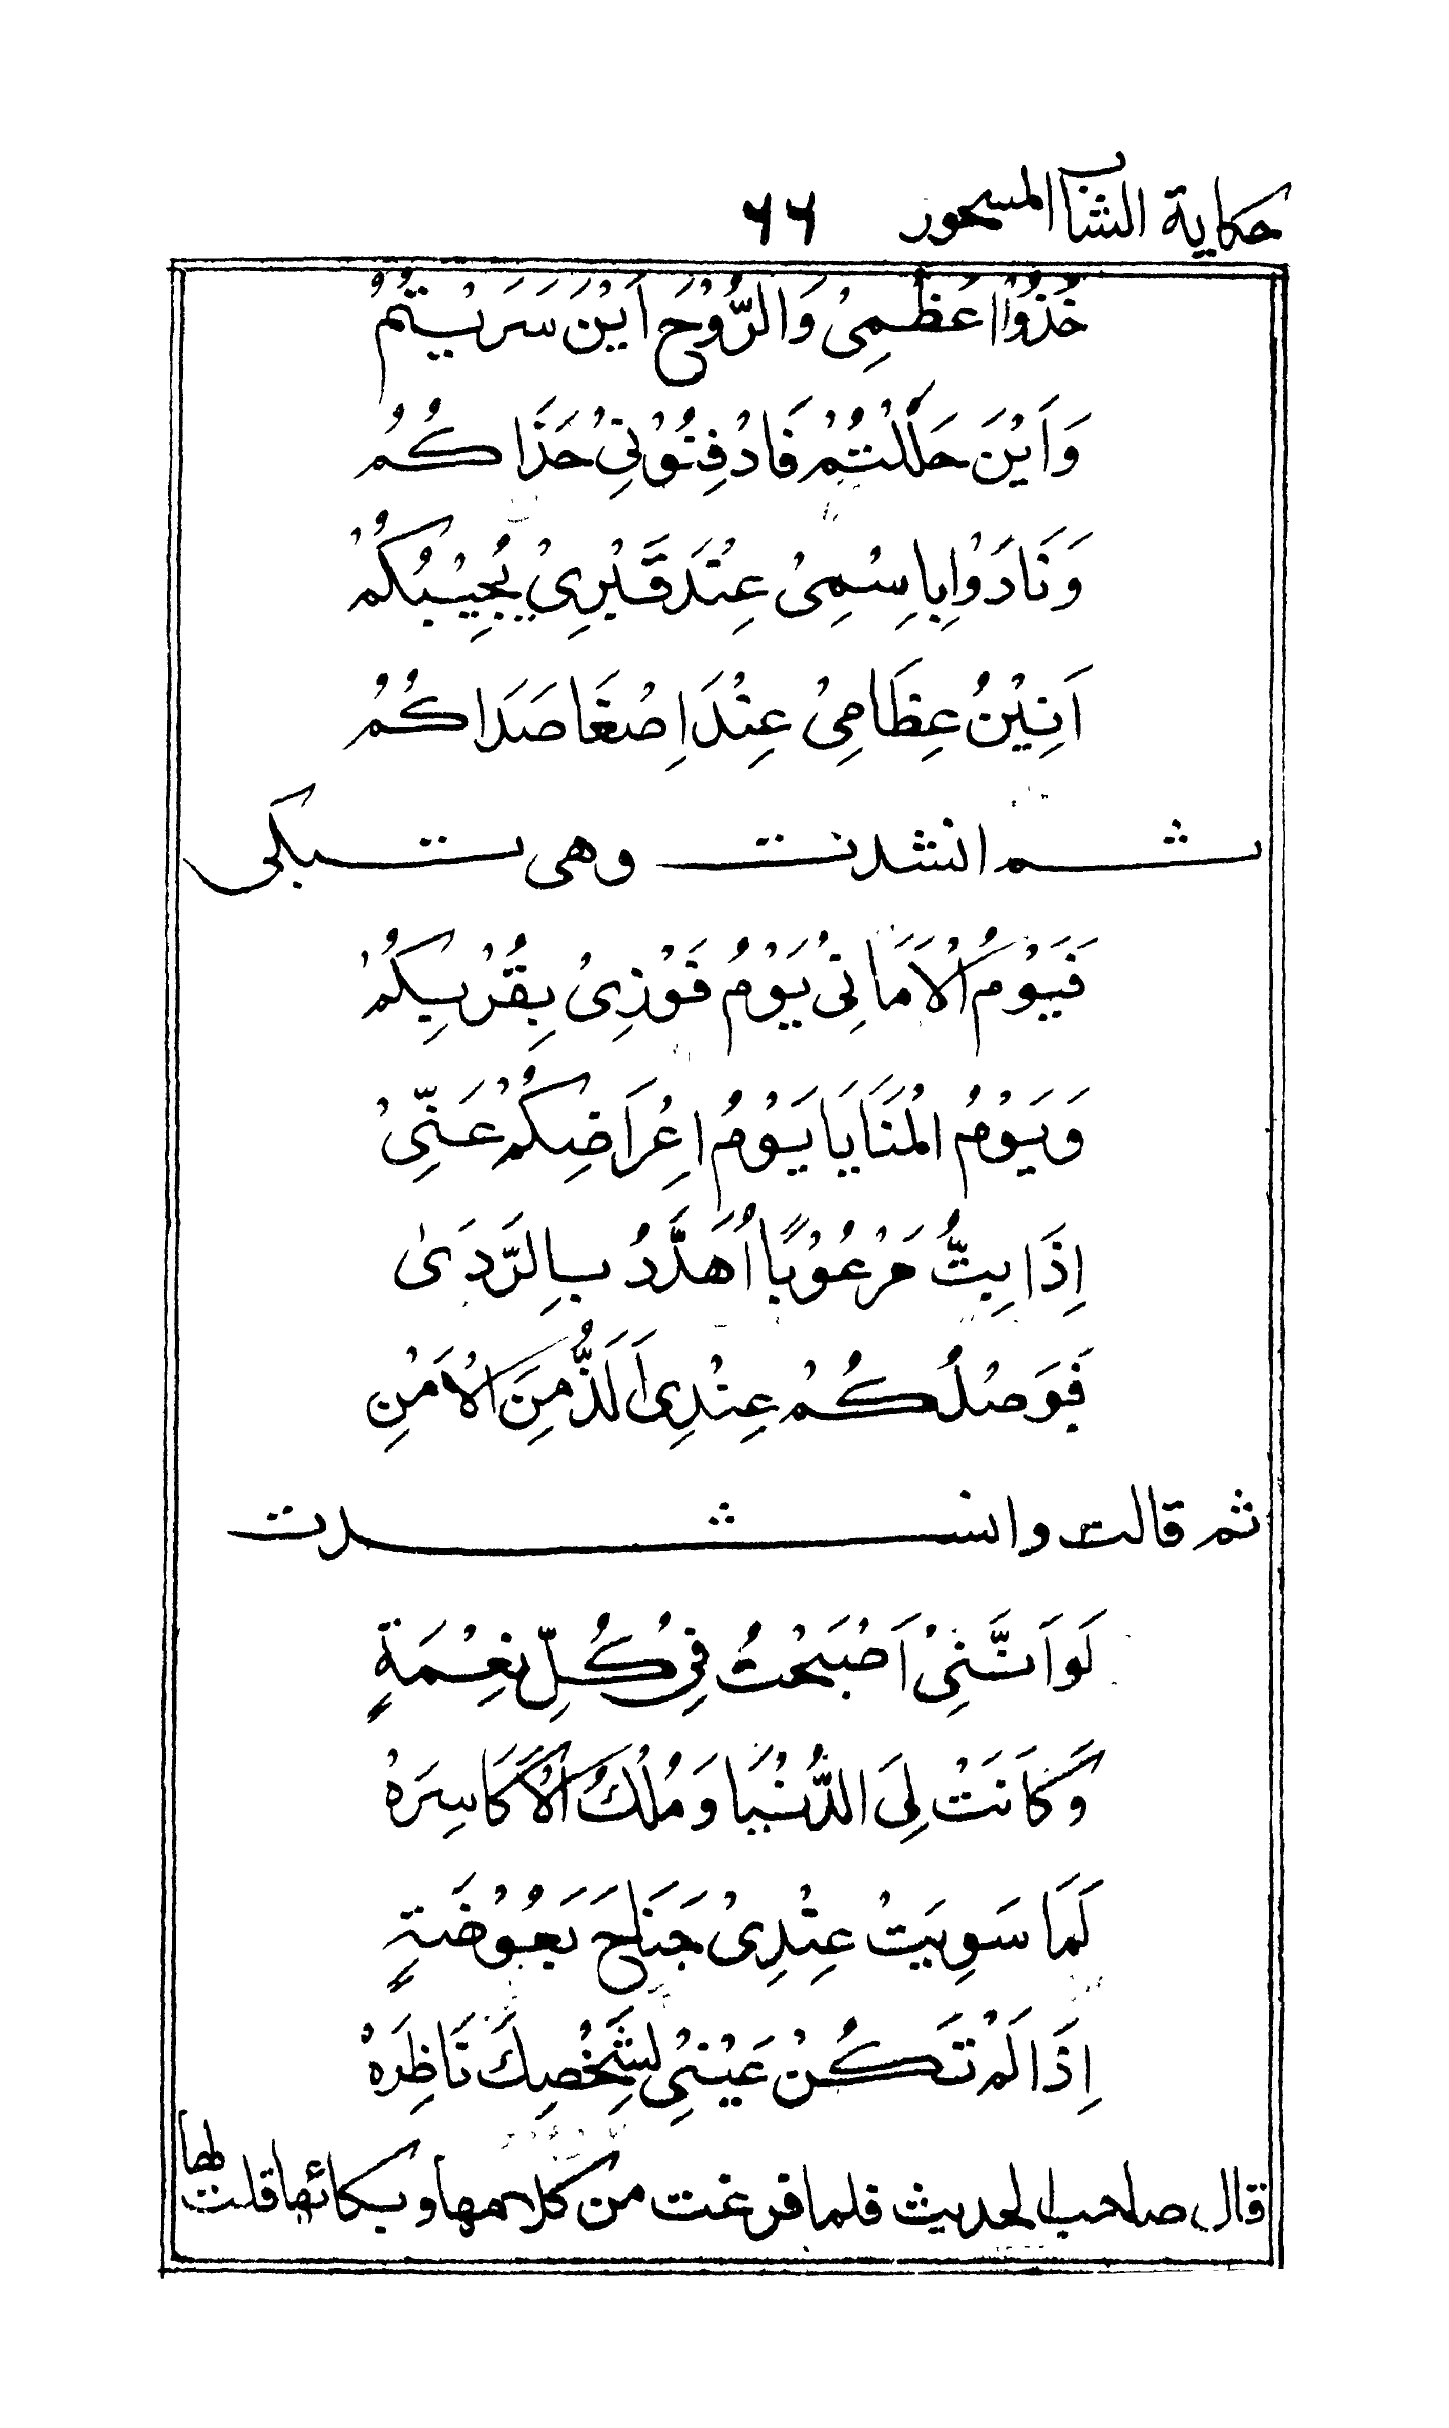 حكاية الشاب المسحور ٦٦
خُذُوْا اعْظُمِيْ وَالرُّوْحَ اَيْنَ سَرَيْتُمْ
وَاَيْنَ حَلَلْتُمْ فَادْفِنُوْنِيْ حَذَاكُمْ
وَنَادَوْا بِاسْمِيْ عِنْدَ قَبْرِيْ يُجِيْبُكُمْ
اَنِيْنُ عِظَامِيْ عِنْدَ اِصْغَا صَدَاكُمْ
ثم انشدت وهى تبكى
فَيَوْمُ الْاَمَانِيْ يَوْمُ فَوْزِيْ بِقُرْبِكُمْ
وَيَوْمُ الْمَنَايَا يَوْمُ اِعْرَاضِكُمْ عَنِّيْ
اِذَا بِتُّ مَرْعُوْبًا اُهَدَّدُ بِالرَّدَىٰ
فَوَصْلُكُمْ عِنْدِىْ اَلَذُّ مِنَ الْاَمْنِ
ثم قالت وانشدت
لَوْ اَنَّنِيْ اَصْبَحْتُ فِيْ كُلِّ نِعْمَةٍ
وَكَانَتْ لِيَ الدُّنْيَا وَمُلْكُ الْاَكَاسِرَهْ
لَمَا سَوِيَتْ عِنْدِيْ جَنَاحَ بَعُوْضَةٍ
اِذَا لَمْ تَكُنْ عَيْنِيْ لِشَخْصِكَ نَاظِرَهْ
قال صاحب الحديث فلما فرغت من كلامها وبكائها قلت لها